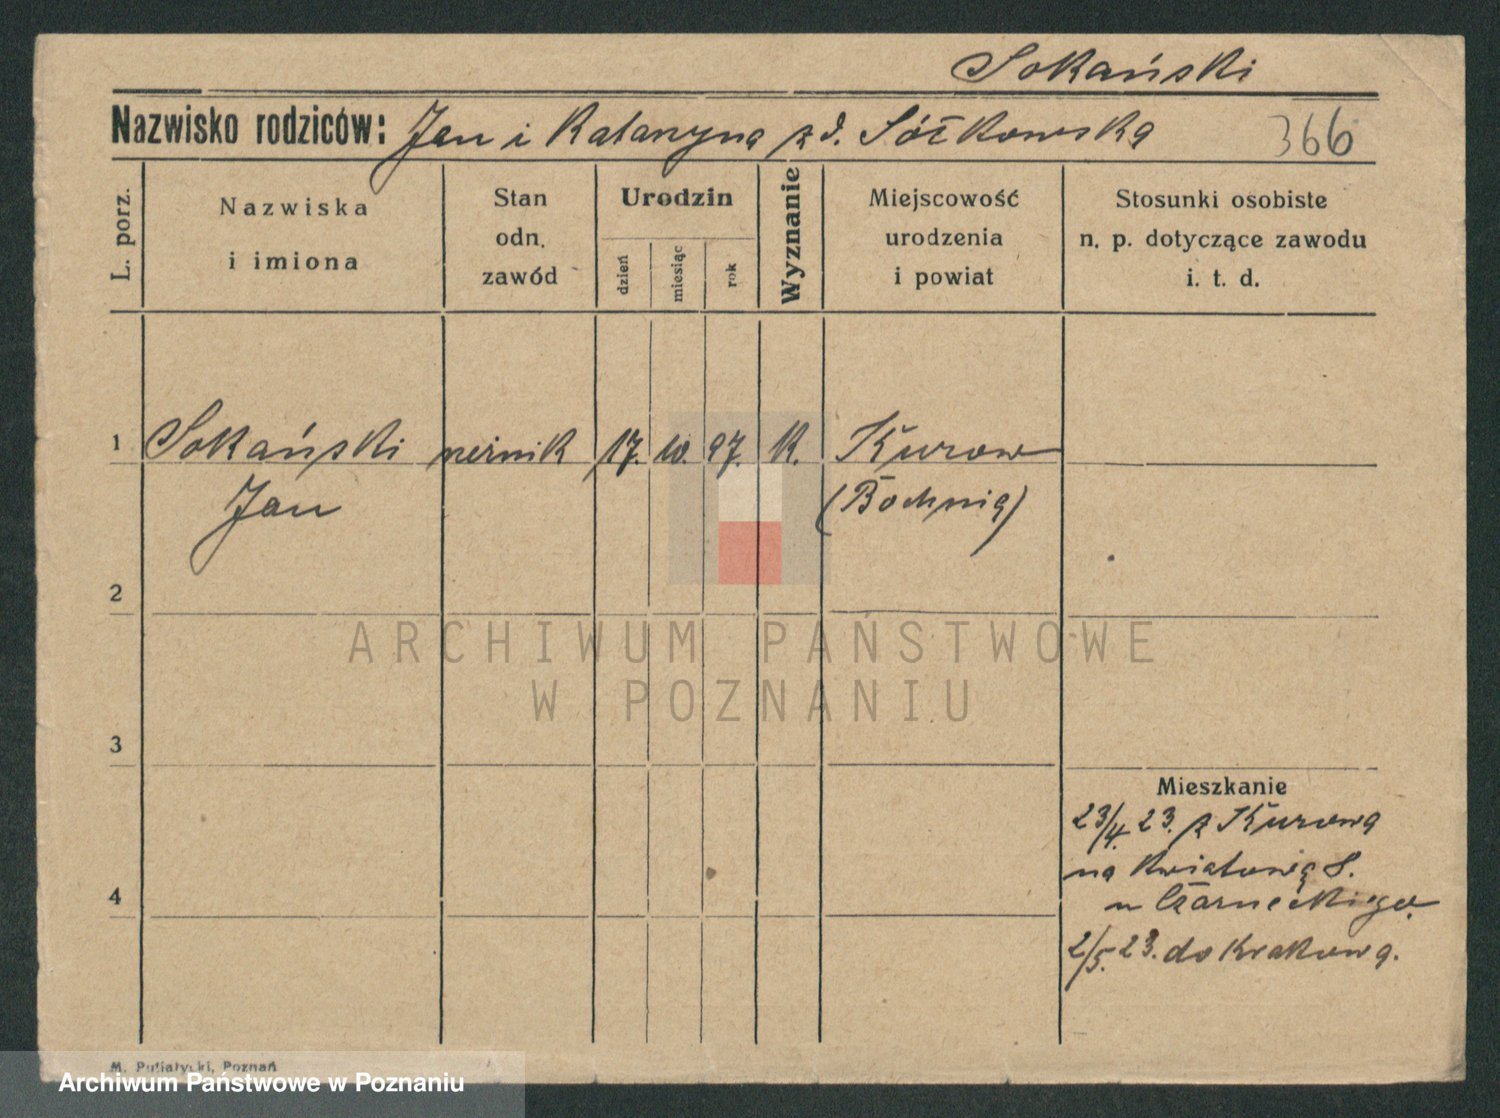 Sokański
Nazwisko rodziców: Jan i Katarzyna z d. Sółkowska
366
L. porz.
Nazwiska
i imiona
Stan
odn.
zawód
Urodzin
dzień
miesiąc
rok
Wyznanie
Miejscowość
urodzenia
i powiat
Stosunki osobiste
n. p. dotyczące zawodu
i. t. d.
1 Sokański 17. 10. 97. K. Kurow
Jan (Bochnia)
2
3
4
Mieszkanie
23/4. 23. z Kurowa
na Kwiatową 8.
u Czarneckiego.
2/5. 23. do Krakowa.
ARCHIWUM PAŃSTWOWE
W POZNANIU
M. Putiatycki, Poznań
Archiwum Państwowe w Poznaniu